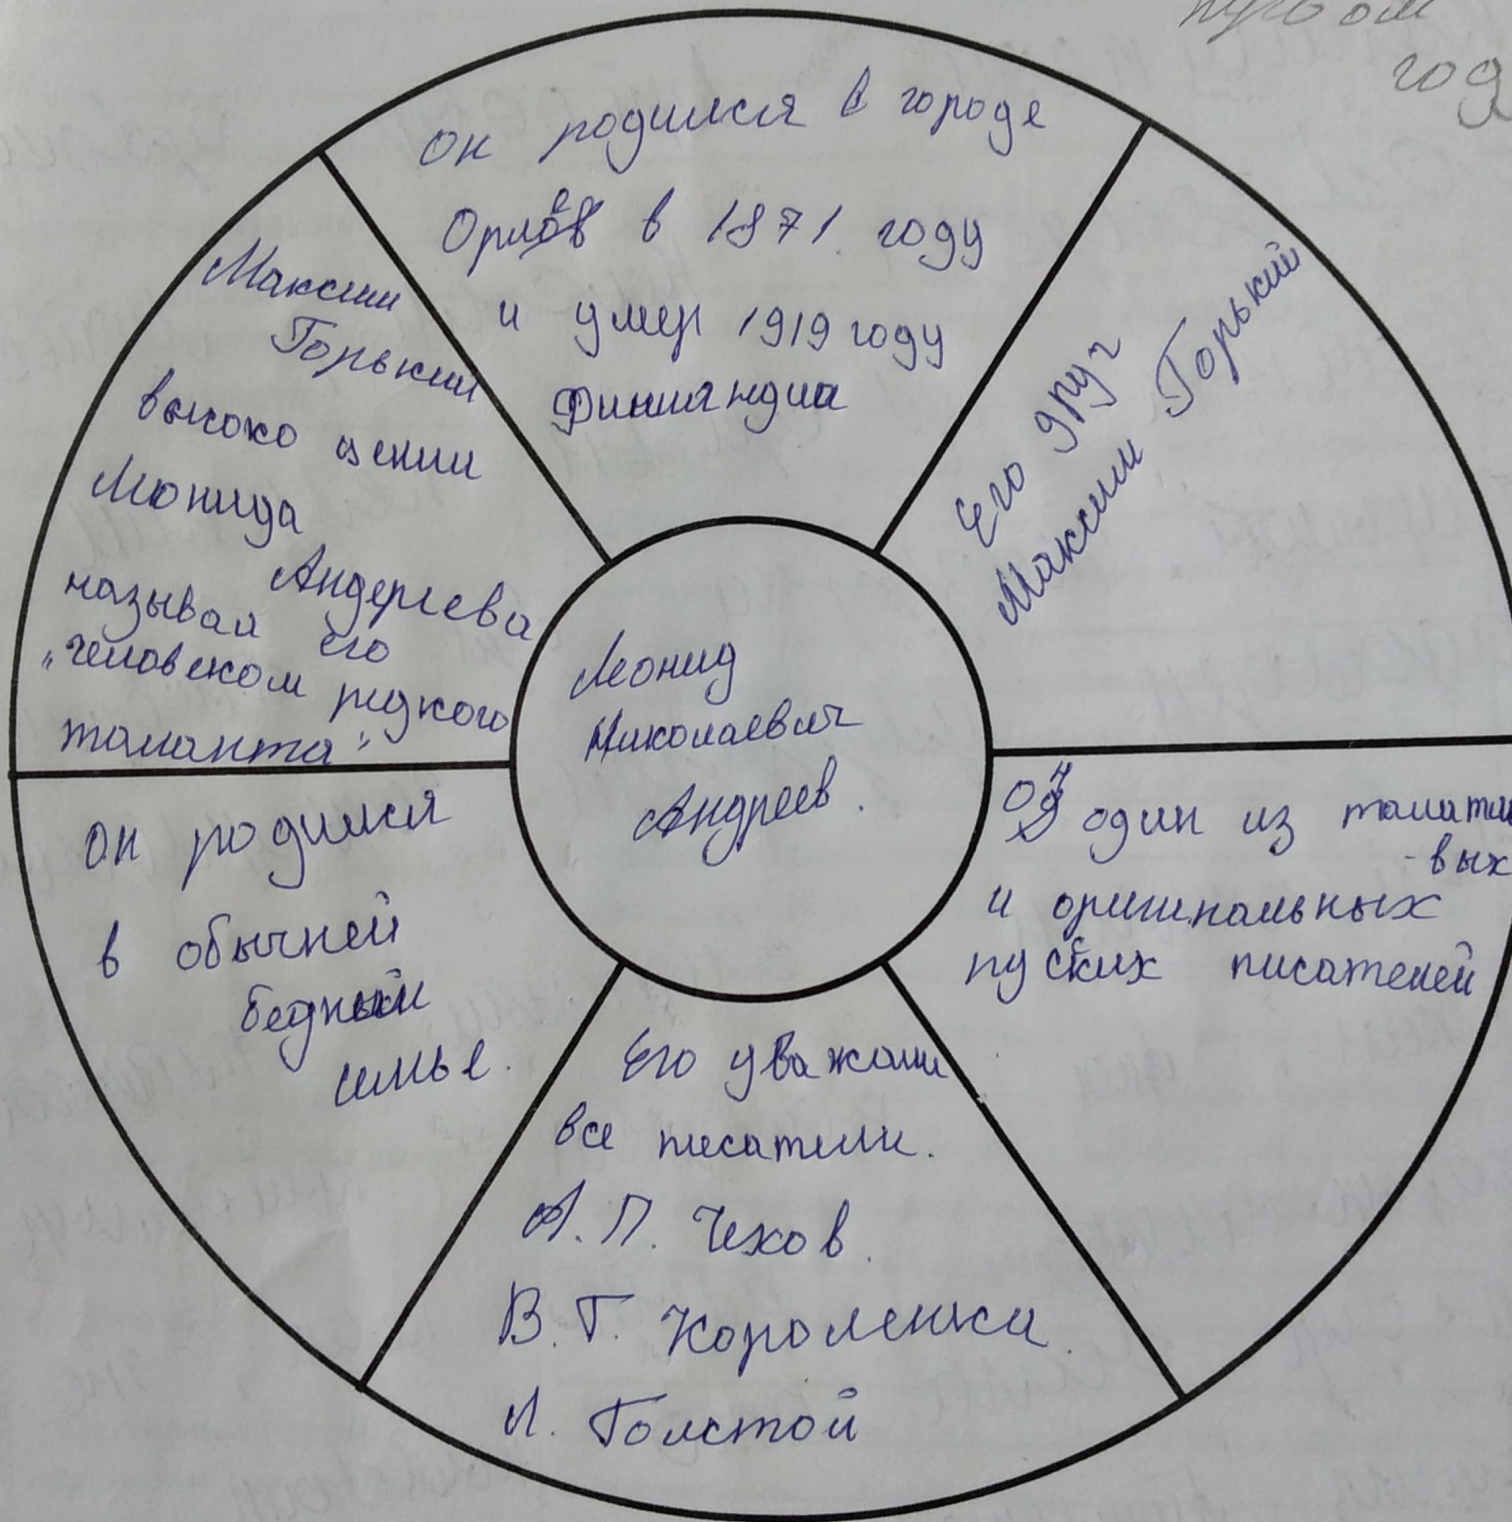 год
он родился в городе
Орле в 1871 году
и умер 1919 году
Финляндиа
Его друг
Максим Горький
один из талатли
-вых
и оригинальных
руских писателей
Его уважали
все писатели.
А. П. Чехов.
В. Г. Короленка.
Л. Толстой
он родился
в обычней
бедный
семье.
Максим
Горький
высоко ценил
Леонида
Андереева
называл его
"человеком редкого
таланта".
Леонид
Николаевич
Андреев.